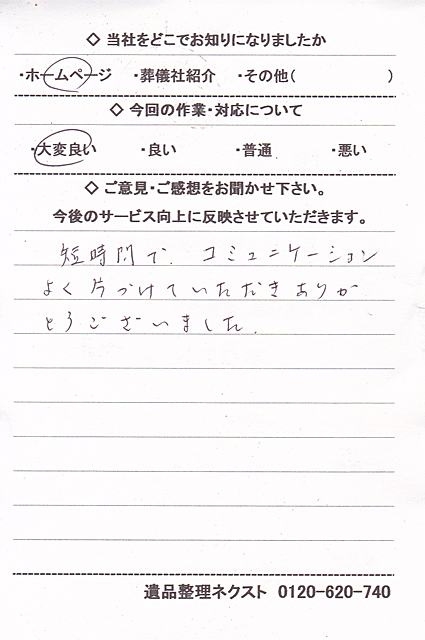 ◇ 当社をどこでお知りになりましたか
・ホームページ ・葬儀社紹介 ・その他( )
◇ 今回の作業・対応について
・大変良い ・良い ・普通 ・悪い
◇ ご意見・ご感想をお聞かせ下さい。
今後のサービス向上に反映させていただきます。
短時間で、コミュニケーション
よく片づけていただきありが
とうございました。
遺品整理ネクスト 0120-620-740